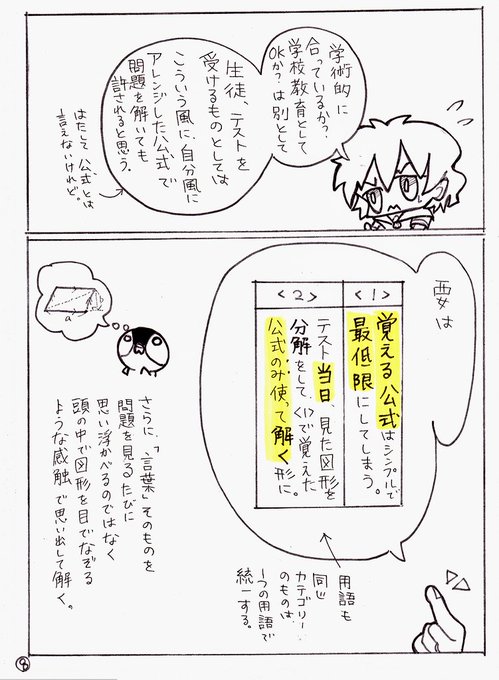 学術的に
合っているか？
学校教育として
OKか？は別として
生徒、テストを
受けるものとしては
こういう風に、自分風に
アレンジした公式で
問題を解いても
許されると思う。
はたして公式とは
言えないけれど。
要は
<1>
覚える公式はシンプルで
最低限にしてしまう。
<2>
テスト当日、見た図形を
分解をして<1>で覚えた
公式のみ使って解く形に。
用語も
同じ
カテゴリー
のものは
1つの用語で
統一する。
さらに、「言葉」そのものを
問題を見るたびに
思い浮かべるのではなく
頭の中で図形を目でなぞる
ような感触で思い出して解く。
8